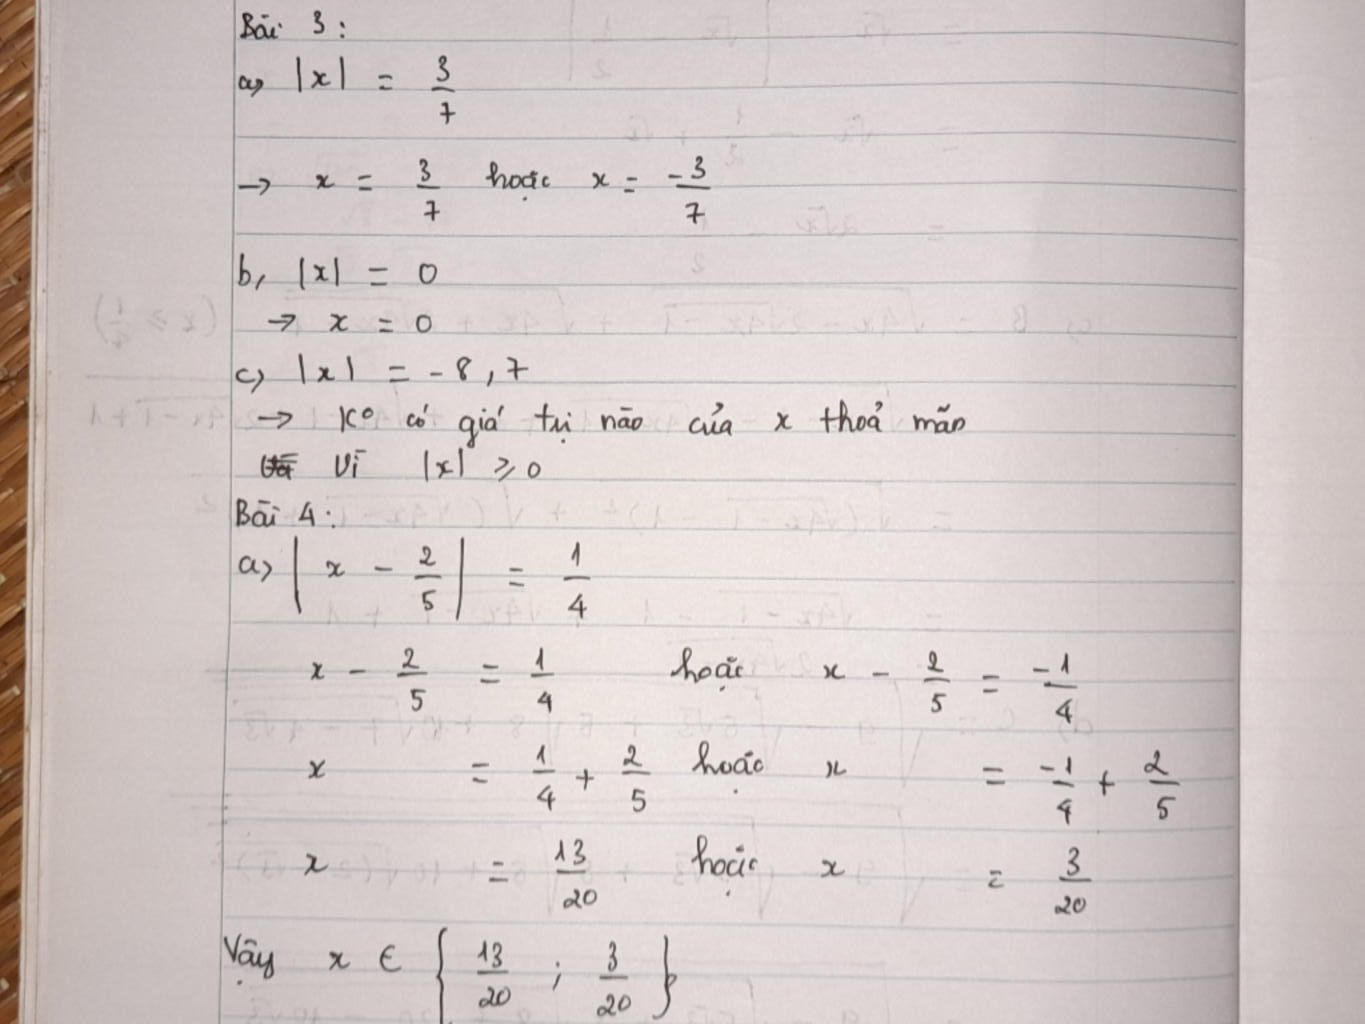 Bài 3 :
a, |x| = 3/7
→ x = 3/7 hoặc x = -3/7
b, |x| = 0
→ x = 0
c, |x| = -8,7
→ K° có giá trị nào của x thoả mãn
Vì |x| ⩾ 0
Bài 4 :
a, |x - 2/5| = 1/4
x - 2/5 = 1/4 hoặc x - 2/5 = -1/4
x = 1/4 + 2/5 hoặc x = -1/4 + 2/5
x = 13/20 hoặc x = 3/20
Vậy x ∈ {13/20 ; 3/20}